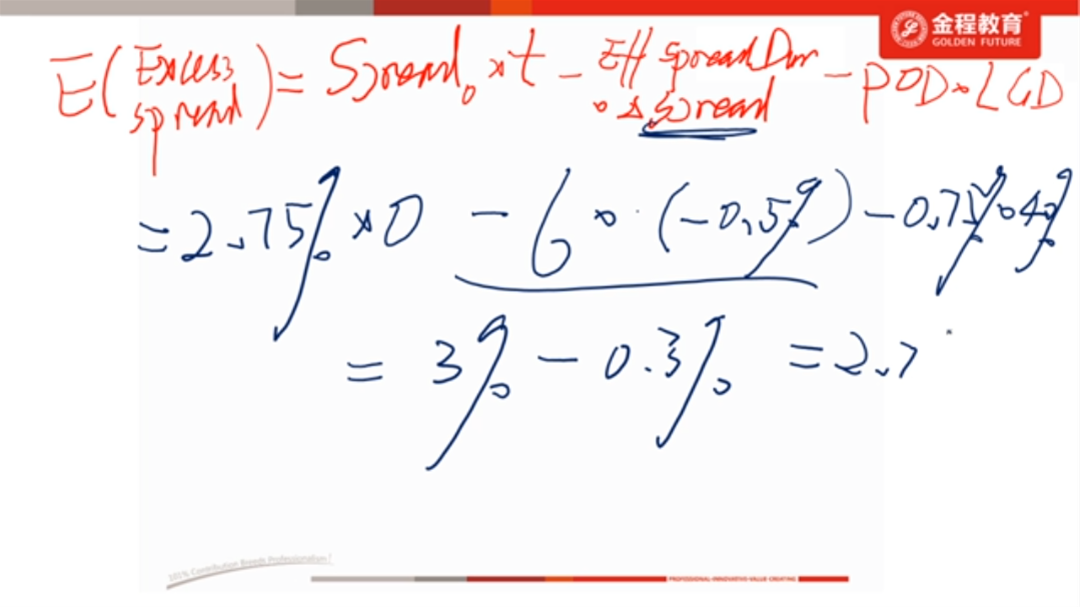 金程教育®
GOLDEN FUTURE
E(Excess spread) = Spread₀ × t − Eff spread Dur · Δspread − POD × LGD
= 2.75% × 0 − 6 × (−0.5%) − 0.75% · 40%
= 3% − 0.3% = 2.7
101% Contribution Breeds Professionalism!
PROFESSIONAL·INNOVATIVE·VALUE CREATING